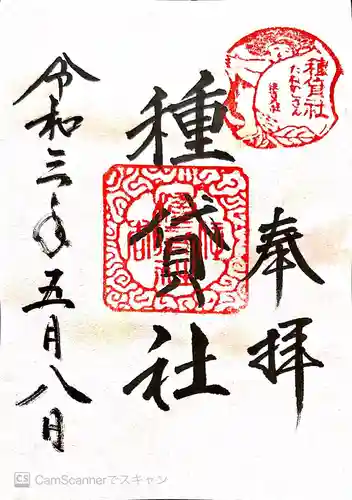 奉拝
種貸社
令和三年五月八日
種貸社
たねかしさん
CS CamScannerでスキャン